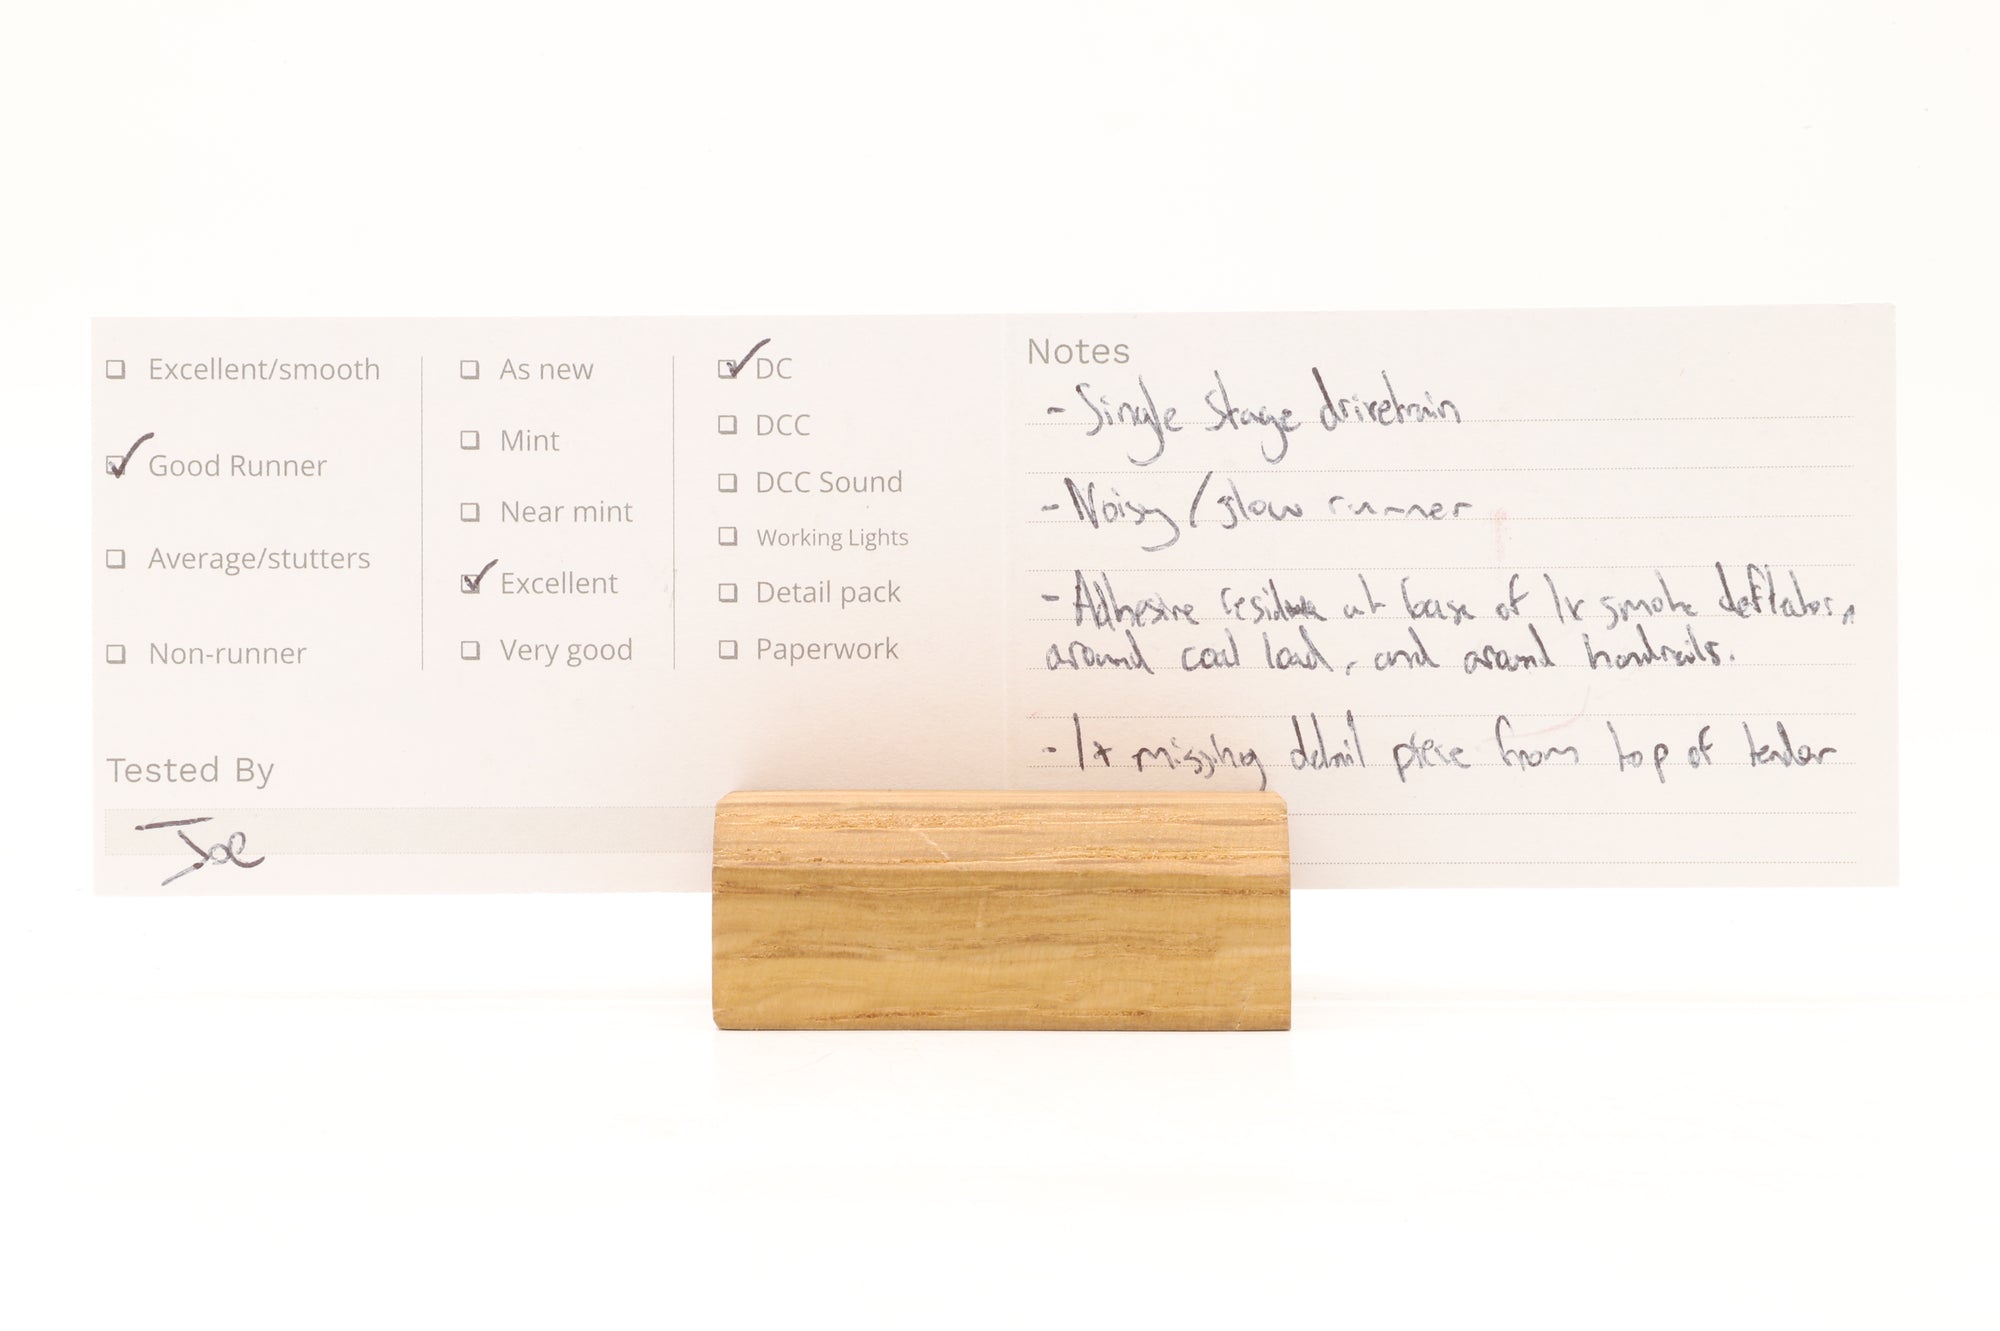 Excellent/smooth
Good Runner
Average/stutters
Non-runner
As new
Mint
Near mint
Excellent
Very good
DC
DCC
DCC Sound
Working Lights
Detail pack
Paperwork
Tested By
Joe
Notes
- Single stage drivetrain
- Noisy/slow runner
- Adhesive residue at base of 1x smoke deflator,
around coal load, and around handrails.
- 1x missing detail piece from top of tender